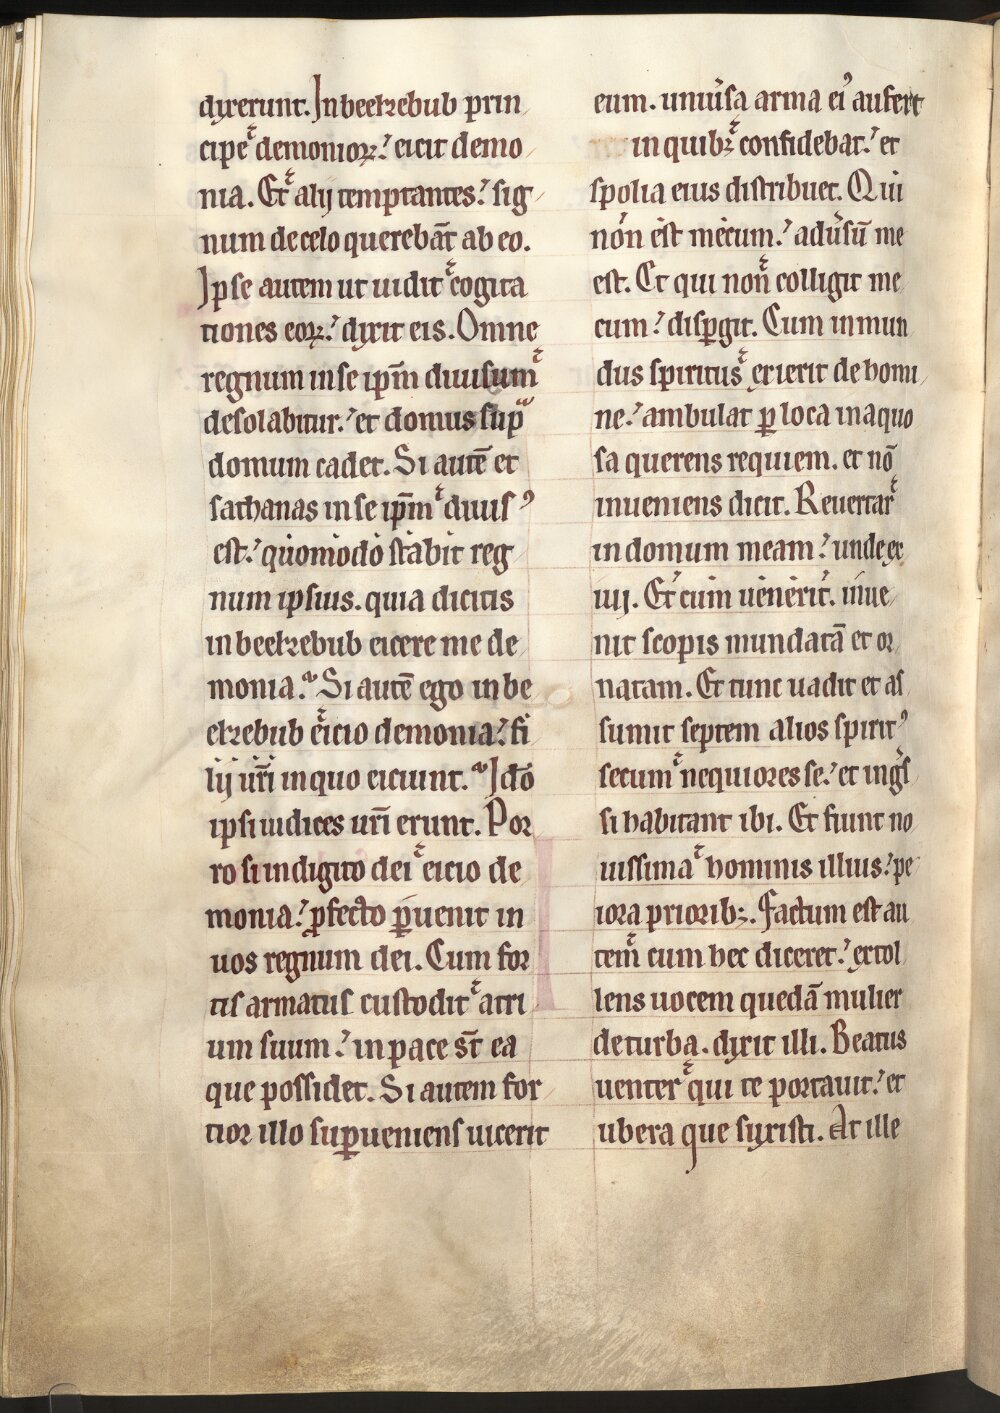 dixerunt. In beelzebub prin
cipe demonioꝝ: eicit demo
nia. Et alij temptantes: sig
num de celo querebāt ab eo.
Ipse autem ut uidit cogita
tiones eoꝝ: dixit eis. Omne
regnum in se ip̄m diuisum
desolabitur: et domus supͣ
domum cadet. Si autē et
sathanas in se ip̄m diuisꝰ
est: quomodo stabit reg
num ipsius. quia dicitis
in beelzebub eicere me de
monia. Si autē ego in be
elzebub eicio demonia: fi
lij ur̄i in quo eiciunt. Idō
ipsi iudices ur̄i erunt. Por
ro si in digito dei eicio de
monia: ꝓfecto p̄uenit in
uos regnum dei. Cum for
tis armatus custodit atri
um suum: in pace st̄ ea
que possidet. Si autem for
tior illo suꝑueniens uicerit
eum. uniu͛sa arma eiꝰ aufert
in quibꝫ confidebat: et
spolia eius distribuet. Qui
non est mecum: adu͛sū me
est. Et qui non colligit me
cum: disꝑgit. Cum inmun
dus spiritus exierit de homi
ne: ambulat ꝑ loca inaquo
sa querens requiem. et nō
inueniens dicit. Reuertar
in domum meam: unde ex
iui. Et cum uenerit. inue
nit scopis mundatā et or
natam. Et tunc uadit et as
sumit septem alios spiritꝰ
secum nequiores se: et ing͛s
si habitant ibi. Et fiunt no
uissima hominis illius: pe
iora prioribꝫ. Factum est au
tem cum hec diceret: extol
lens uocem quedā mulier
de turba. dixit illi. Beatus
uenter qui te portauit: et
ubera que suxisti. At ille